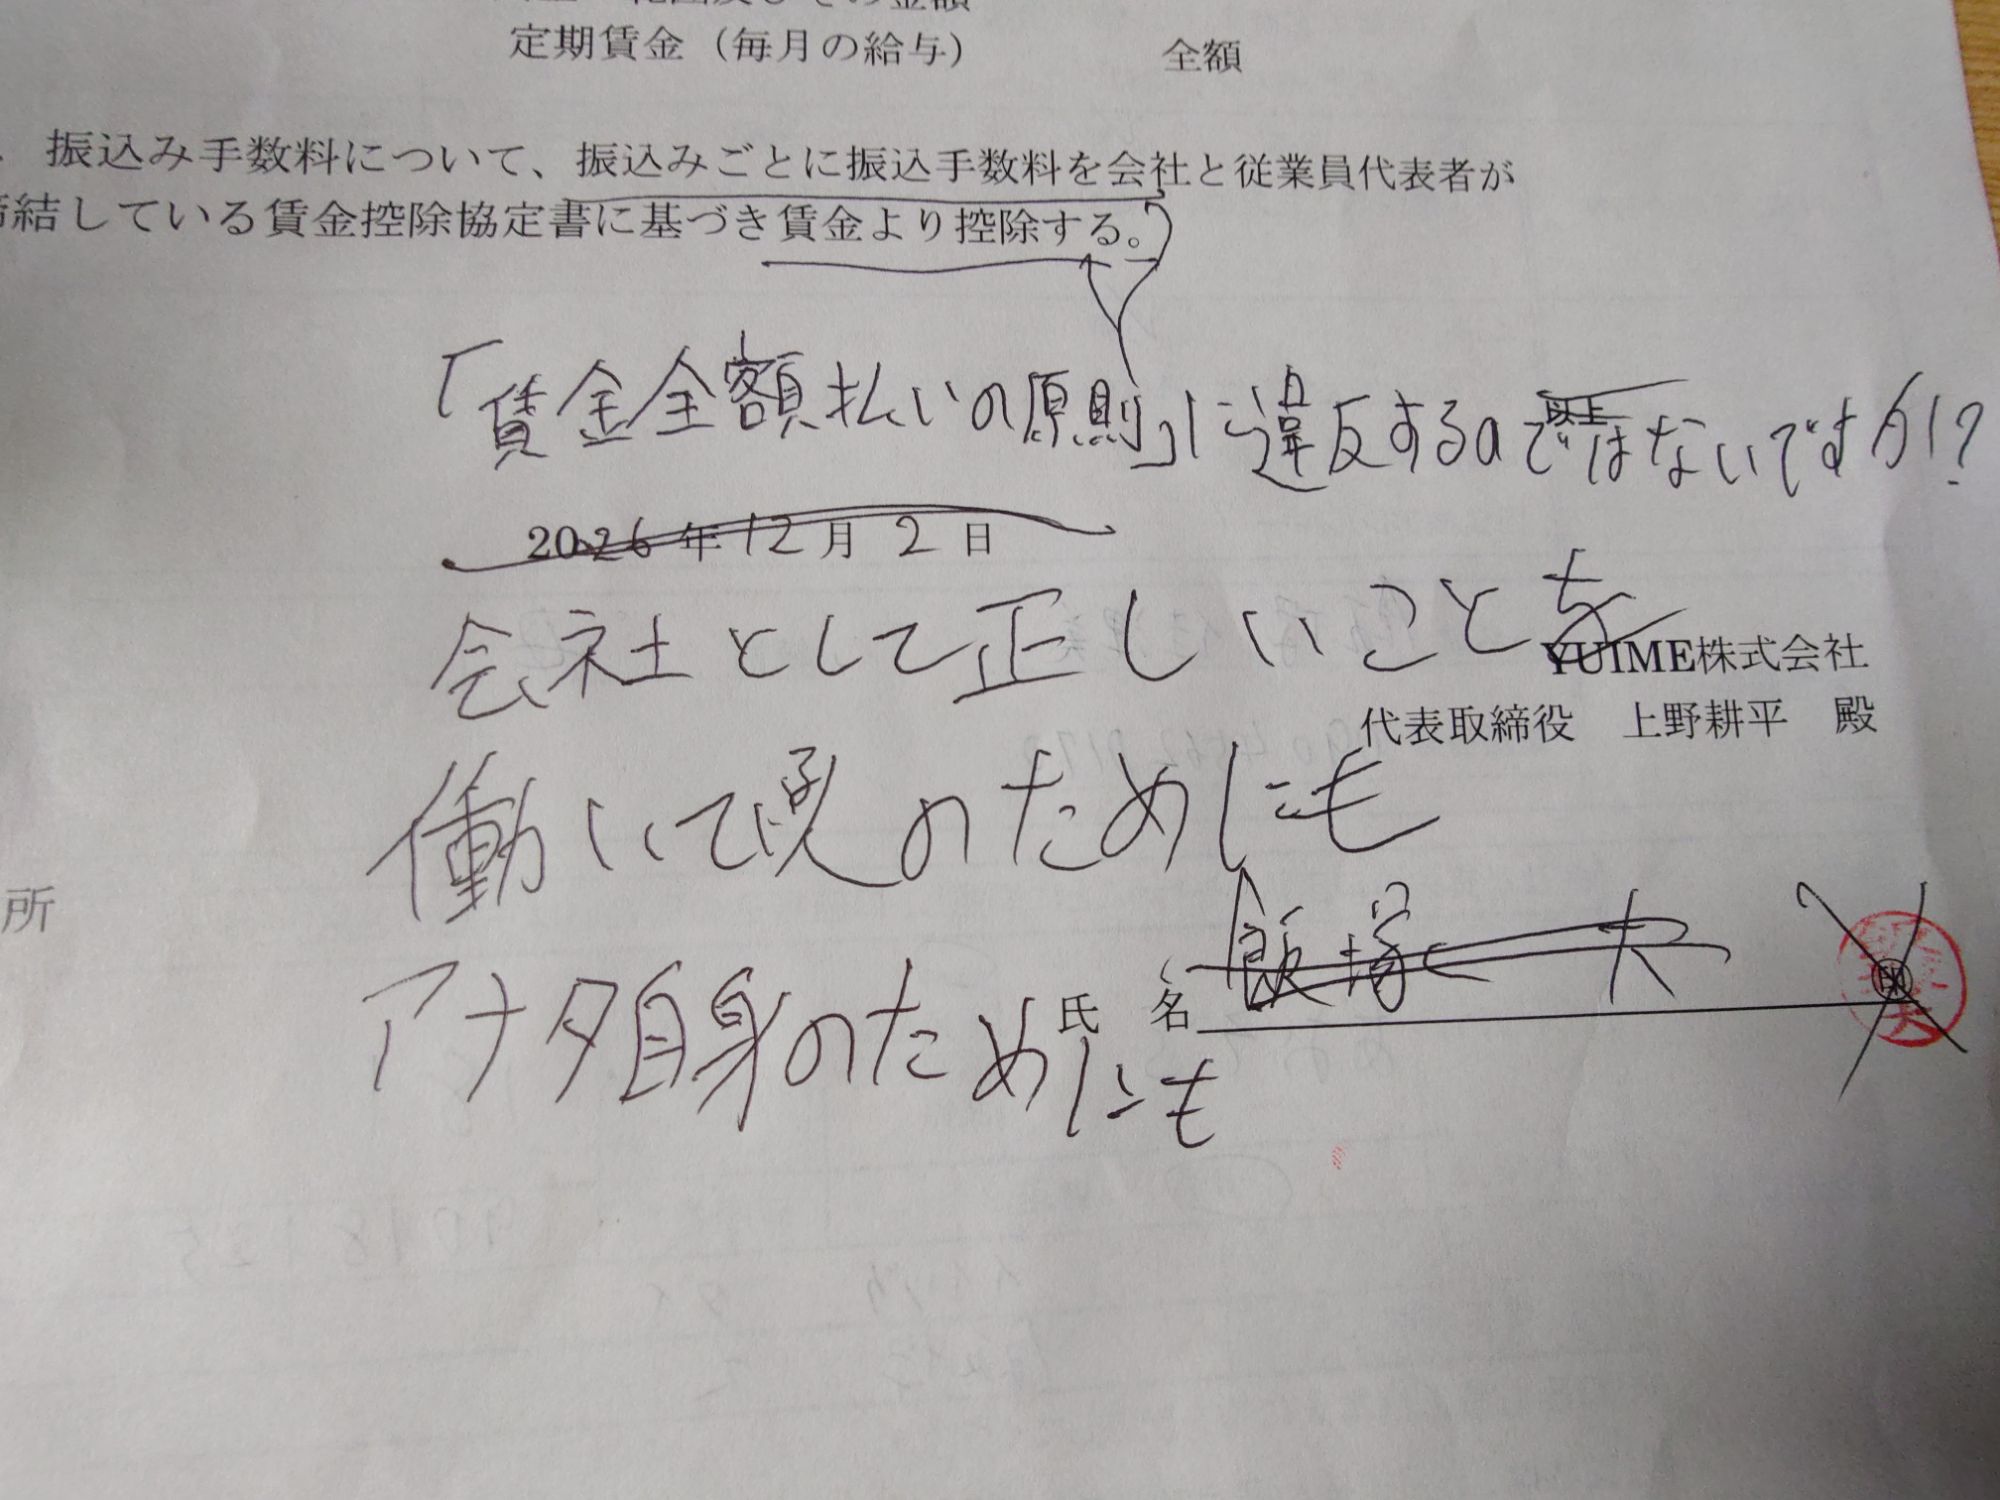 定期賃金（毎月の給与） 全額
振込み手数料について、振込みごとに振込手数料を会社と従業員代表者が
締結している賃金控除協定書に基づき賃金より控除する。
「賃金全額払いの原則」に違反するのではないですか!?
以上
2026年12月2日
会社として正しいことを
YUIME株式会社
代表取締役 上野耕平 殿
働いて のためにも
所
氏 名 飯塚 印
アナタ自身のためにも